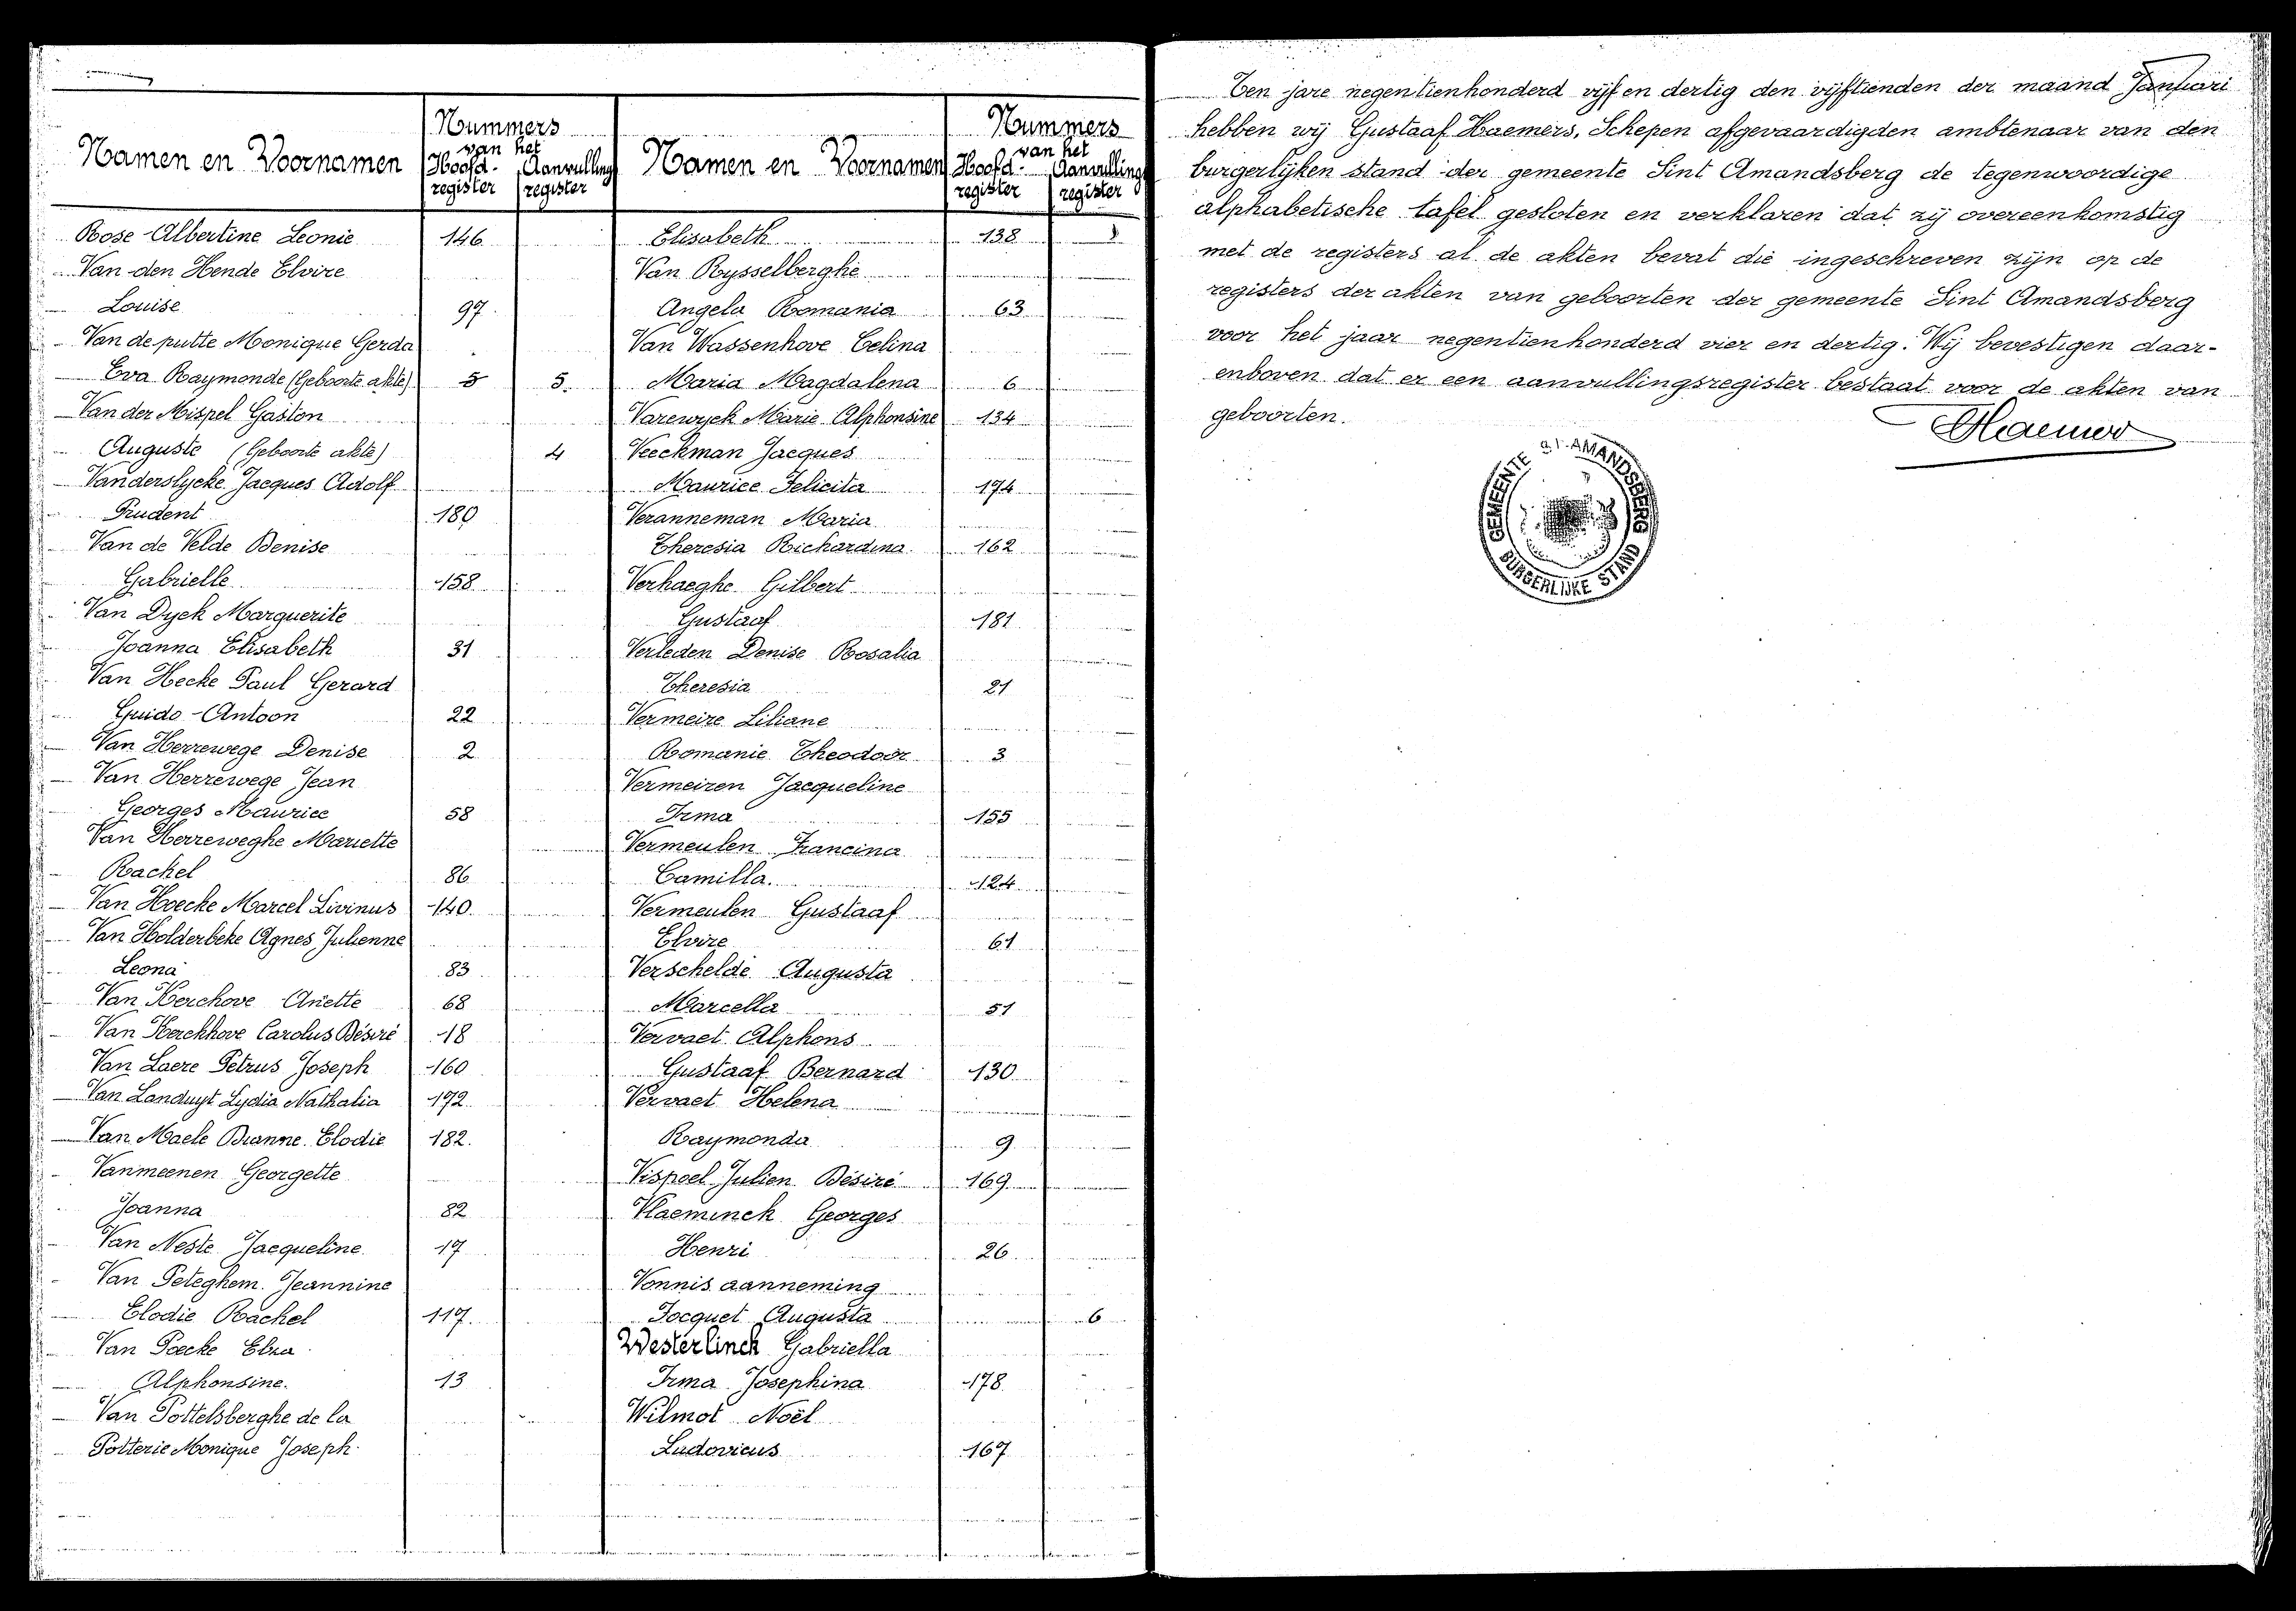 Namen en Voornamen
Nummers
van het
Hoofd-
register
Aanvulling
register
Rose Albertine Leonie 146
Van den Hende Elvire
Louise 97
Van de putte Monique Gerda
Eva Raymonde (Geboorte akte) 5 5.
Van der Mispel Gaston
Auguste (Geboorte akte) 4
Vanderslycke Jacques Adolf
Prudent 180
Van de Velde Denise
Gabrielle 158
Van Dyck Marguerite
Joanna Elisabeth 31
Van Hecke Paul Gerard
Guido - Antoon 22
Van Herrewege Denise 2
Van Herrewege Jean
Georges Maurice 58
Van Herreweghe Mariette
Rachel 86
Van Hoecke Marcel Livinus 140
Van Holderbeke Agnes Julienne
Leona 83
Van Kerchove Ariette 68
Van Kerckhove Carolus Désiré 18
Van Laere Petrus Joseph 160
Van Landuyt Lydia Nathalia 172
Van Maele Elodie 182.
Vanmeenen Georgette
Joanna 82
Van Neste Jacqueline 17
Van Peteghem Jeannine
Elodie Rachel 117.
Van Poecke Elza
Alphonsine. 13
Van Pottelsberghe de la
Potterie Monique Joseph
Namen en Voornamen
Nummers
van het
Hoofd-
register
Aanvulling
register
Elisabeth 138
Van Rysselberghe
Angela Romania 63
Van Wassenhove Celina
Maria Magdalena 6
Varewyck Marie Alphonsine 134
Veeckman Jacques
Maurice Felicita 174
Veranneman Maria
Theresia Richardina 162
Verhaeghe Gilbert
Gustaaf 181
Verleden Denise Rosalia
Theresia 21
Vermeire Liliane
Romanie Theodoor 3
Vermeiren Jacqueline
Irma 155
Vermeulen Francina
Camilla. 124
Vermeulen Gustaaf
Elvire 61
Verschelde Augusta
Marcella 51
Vervaet Alphons
Gustaaf Bernard 130
Vervaet Helena
Raymonda 9
Vispoel Julien Désiré 169
Vlaeminck Georges
Henri 26
Vonnis aanneming
Jocquet Augusta 6
Westerlinck Gabriella
Irma Josephina 178
Wilmot Noël
Ludovicus 167
Ten jare negentienhonderd vijf en dertig den vijftienden der maand Januari
hebben wij Gustaaf Haemers, Schepen afgevaardigden ambtenaar van den
burgerlijken stand der gemeente Sint Amandsberg de tegenwoordige
alphabetische tafel gesloten en verklaren dat zij overeenkomstig
met de registers al de akten bevat die ingeschreven zijn op de
registers der akten van geboorten der gemeente Sint Amandsberg
voor het jaar negentienhonderd vier en dertig. Wij bevestigen daar-
enboven dat er een aanvullingsregister bestaat voor de akten van
geboorten.
GHaemers
GEMEENTE St. AMANDSBERG
BURGERLIJKE STAND